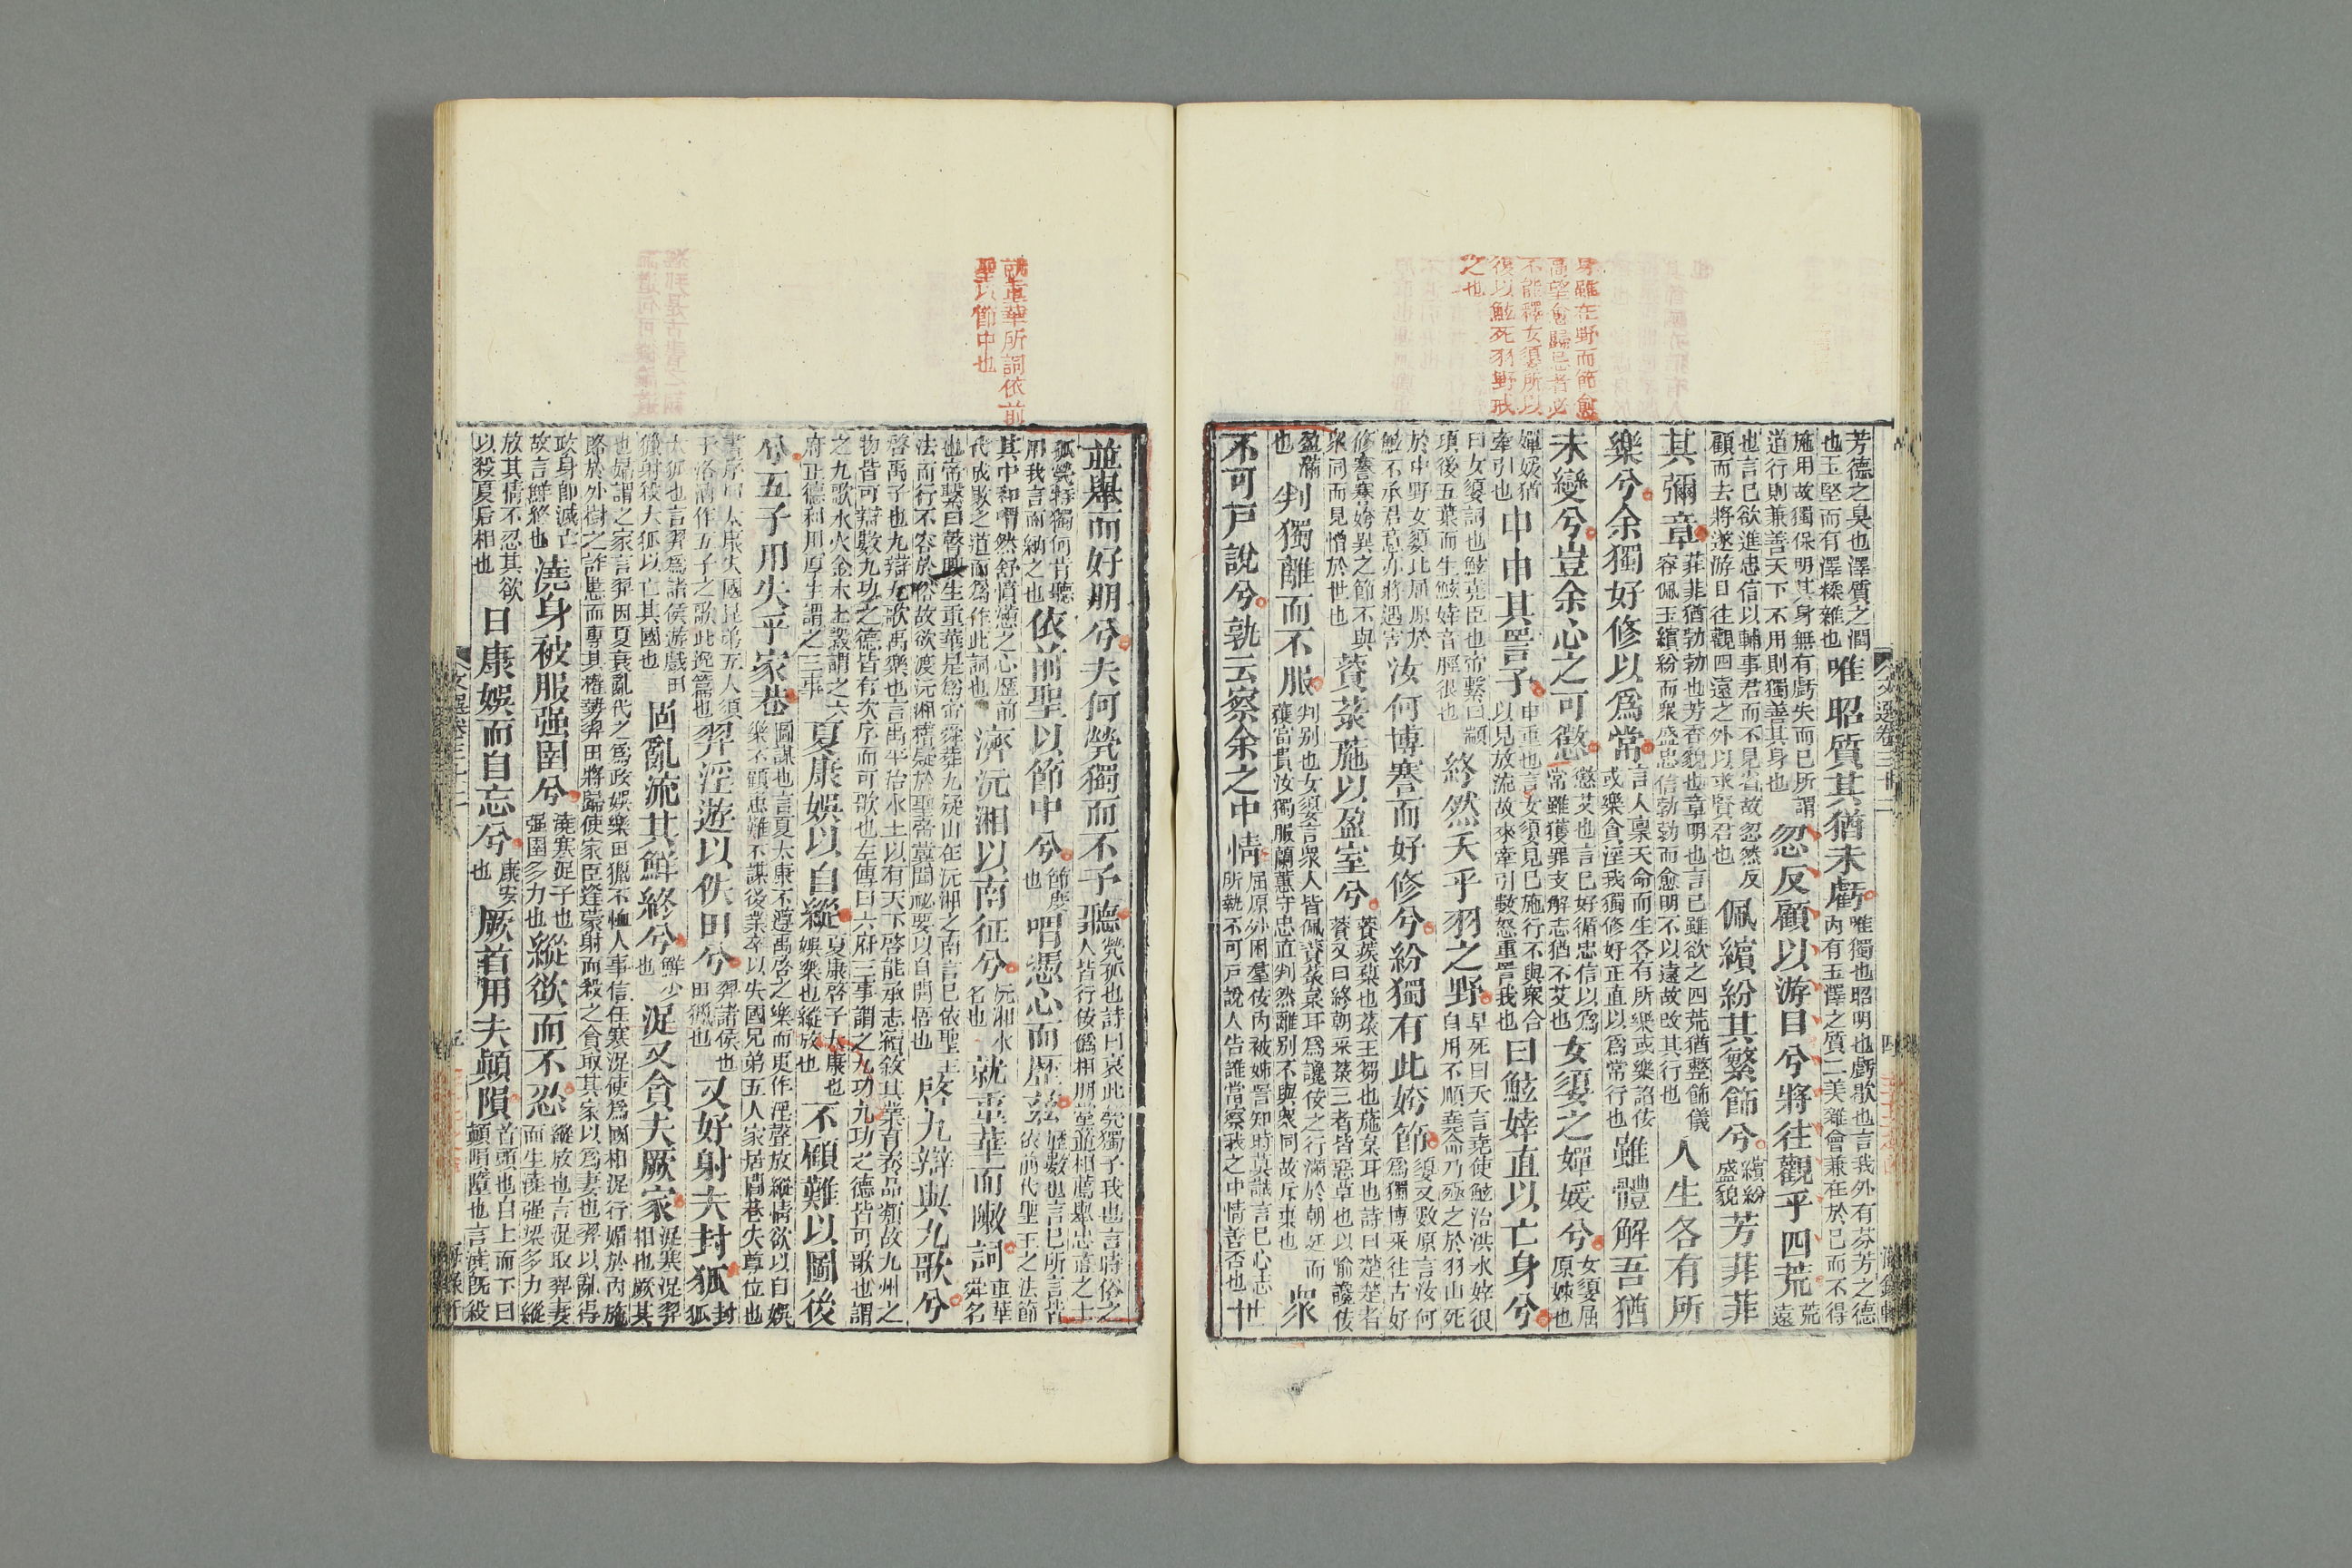 身雖在野而飾愈
高望愈歸已者必
不能釋女須所以
復以鮌死羽野戒
之也
芳德之臭也澤質之潤
也玉堅而有澤糅雜也
唯昭質其猶未虧
唯獨也昭明也虧歇也言我外有芬芳之德
內有玉澤之質二美雜會兼在於已而不得
施用故獨保明其身無有虧失而已所謂
道行則兼善天下不用則獨善其身也
忽反顧以游目兮將往觀乎四荒
荒
遠
也言已欲進忠信以輔事君而不見省故忽然反
顧而去將遂游目往觀四遠之外以求賢君也
佩繽紛其繁飾兮
繽紛
盛貌
芳菲菲
其彌章
菲菲猶勃勃也芳香貌也章明也言已雖欲之四荒猶整飾儀
容佩玉繽紛而衆盛忠信勃勃而愈明不以遠故改其行也
人生各有所
樂兮余獨好修以爲常
言人稟天命而生各有所樂或樂諂佞
或樂貪淫我獨修好正直以爲常行也
雖體解吾猶
未變兮豈余心之可懲
懲艾也言已好循忠信以爲
常雖獲罪支解志猶不艾也
女嬃之嬋媛兮
女嬃屈
原姊也
嬋媛猶
牽引也
申申其詈予
申重也言女嬃見已施行不與衆合
以見放流故來牽引數怒重詈我也
曰鮌婞直以亡身兮
曰女嬃詞也鮌堯臣也帝繫曰顓
頊後五葉而生鮌婞音脛很也
終然夭乎羽之野
早死曰夭言堯使鮌治洪水婞很
自用不順堯命乃殛之於羽山死
於中野女嬃比屈原於
鮌不承君意亦將遇害
汝何博謇而好修兮紛獨有此姱節
嬃又數原言汝何
爲獨博采往古好
修謇謇姱異之節不與
衆同而見憎於世也
薋菉葹以盈室兮
薋蒺藜也菉王芻也葹枲耳也詩曰楚楚者
薋又曰終朝采菉三者皆惡草也以喻讒佞
盈滿
也
判獨離而不服
判別也女嬃言衆人皆佩薋菉枲耳爲讒佞之行滿於朝廷而
獲富貴汝獨服蘭蕙守忠直判然離別不與衆同故斥棄也
衆
不可戸說兮孰云察余之中情
屈原外困羣佞內被姊詈知時莫識言已心志
所執不可戸說人告誰當察我之中情善否也
世
文選卷三十二
四
海錄軒
就重華所詞依前
聖以節中也
並舉而好朋兮夫何煢獨而不予聽
煢孤也詩曰哀此煢獨予我也言時俗之
人皆行佞僞相朋黨並相薦舉忠直之士
孤煢特獨何肯聽
用我言而納之也
依前聖以節中兮
節度
也
喟憑心而歷茲
歷數也言已所言皆
依前代聖王之法節
其中和喟然舒憤懣之心歷前
代成敗之道而爲作此詞也
濟沅湘以南征兮
沅湘水
名也
就重華而敶詞
重華
舜名
也帝繫曰瞽瞍生重華是爲帝舜葬九疑山在沅湘之南言已依聖王
法而行不容於俗故欲渡沅湘稽疑於聖帝冀聞祕要以自開悟也
啓九辯與九歌兮
啓禹子也九辯九歌禹樂也言禹平治水土以有天下啓能承志續敘其業育養品類故九州之
物皆可辯數九功之德皆有次序而可歌也左傳曰六府三事謂之九功九功之德皆可歌也謂
之九歌水火金木土穀謂之六
府正德利用厚生謂之三事
夏康娛以自縱
夏康啓子太康也
娛樂也縱放也
不顧難以圖後
兮五子用失乎家巷
圖謀也言夏太康不遵禹啓之樂而更作淫聲放縱情欲以自娛
樂不顧患難不謀後業卒以失國兄弟五人家居閭巷失尊位也
書序曰太康失國昆弟五人須
乎洛汭作五子之歌此逸篇也
羿淫遊以佚田兮
羿諸侯也
田獵也
又好射夫封狐
封
狐
大狐也言羿爲諸侯遊戲田
獵射殺大狐以亡其國也
固亂流其鮮終兮
鮮少
也
浞又貪夫厥家
浞寒浞羿
相也厥其
也婦謂之家言羿因夏衰亂代之爲政娛樂田獵不恤人事信任寒浞使爲國相浞行媚於內施
賂於外樹之詐慝而專其權勢羿田將歸使家臣逢蒙射而殺之貪取其家以爲妻也羿以亂得
政身卽滅亡
故言鮮終也
澆身被服强圉兮
澆寒浞子也
强圉多力也
縱欲而不忍
縱放也言浞取羿妻
而生澆强梁多力縱
放其情不忍其欲
以殺夏后相也
日康娛而自忘兮
康安
也
厥首用夫顛隕
首頭也自上而下曰
顛隕墮也言澆旣殺
文選卷三十二
五
海錄軒